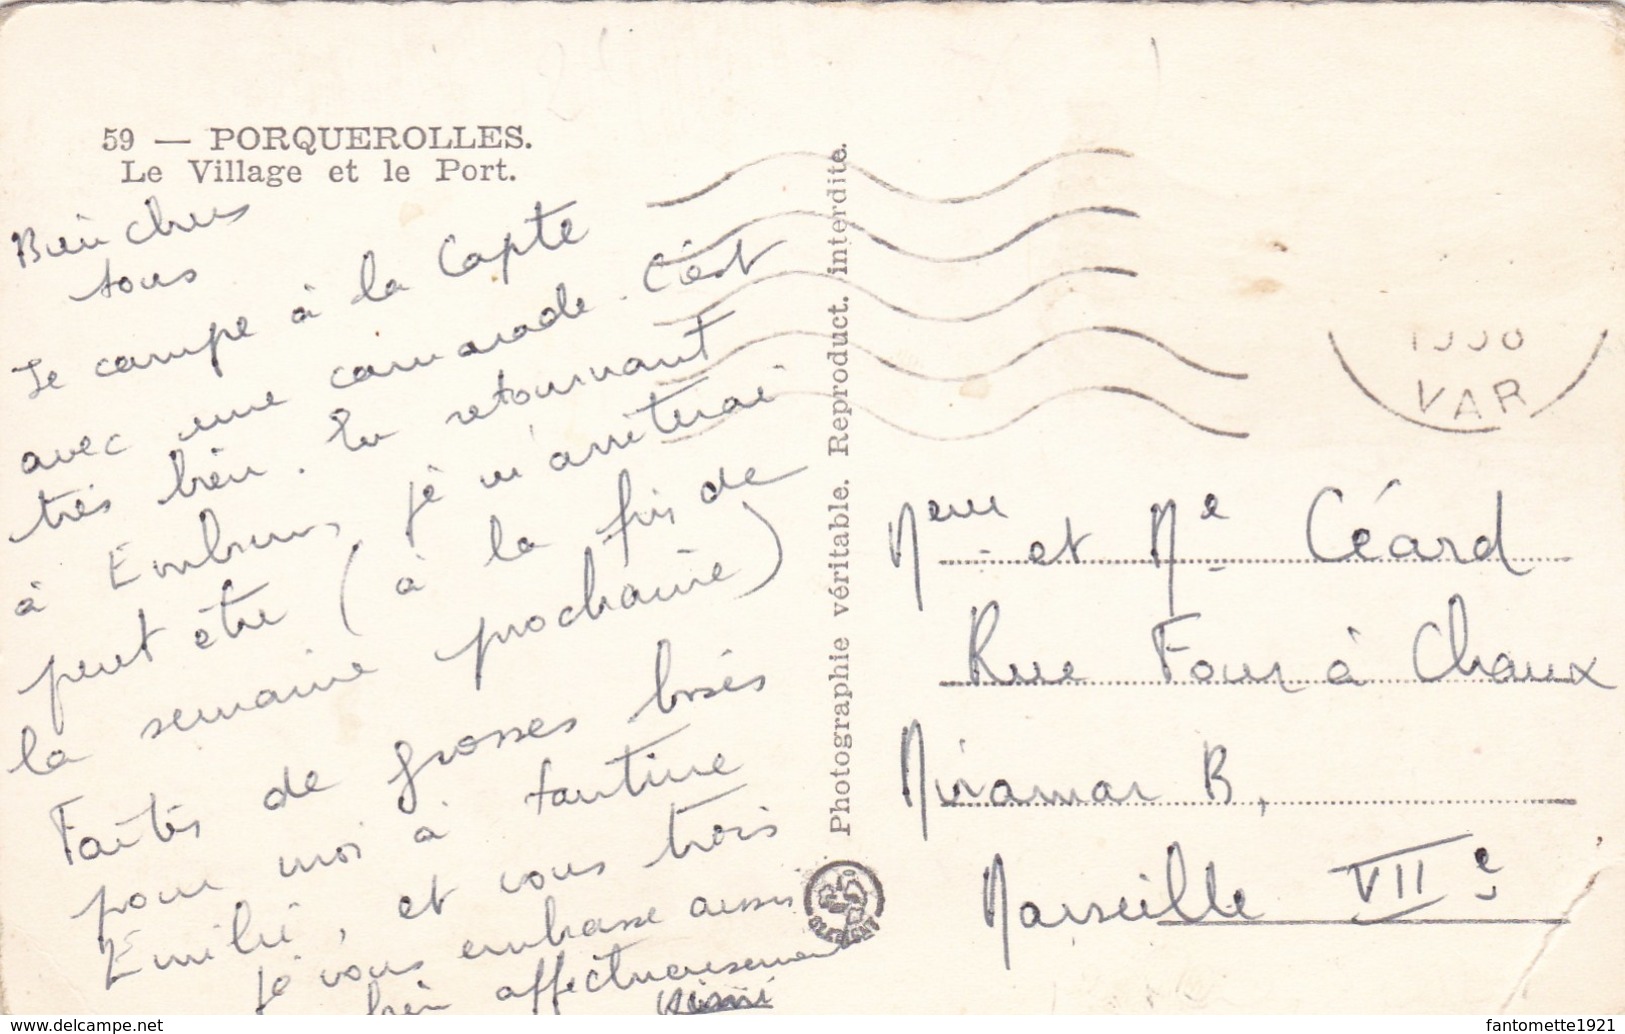 59 — PORQUEROLLES.
Le Village et le Port.
Bien chers
tous
Je campe à la Capte
avec une camarade. C'est
très bien. En retournant
à Embrun, je m'arrêterai
peut être (à la fin de
la semaine prochaine)
Faites de grosses bises
pour moi à tantine
Emilie, et vous trois
je vous embrasse aussi
bien affectueusement
Photographie véritable. Reproduct. interdite.
VAR
Mme et Me Céard
Rue Four à Chaux
Miramar B,
Marseille VIIe
www.delcampe.net
fantomette1921